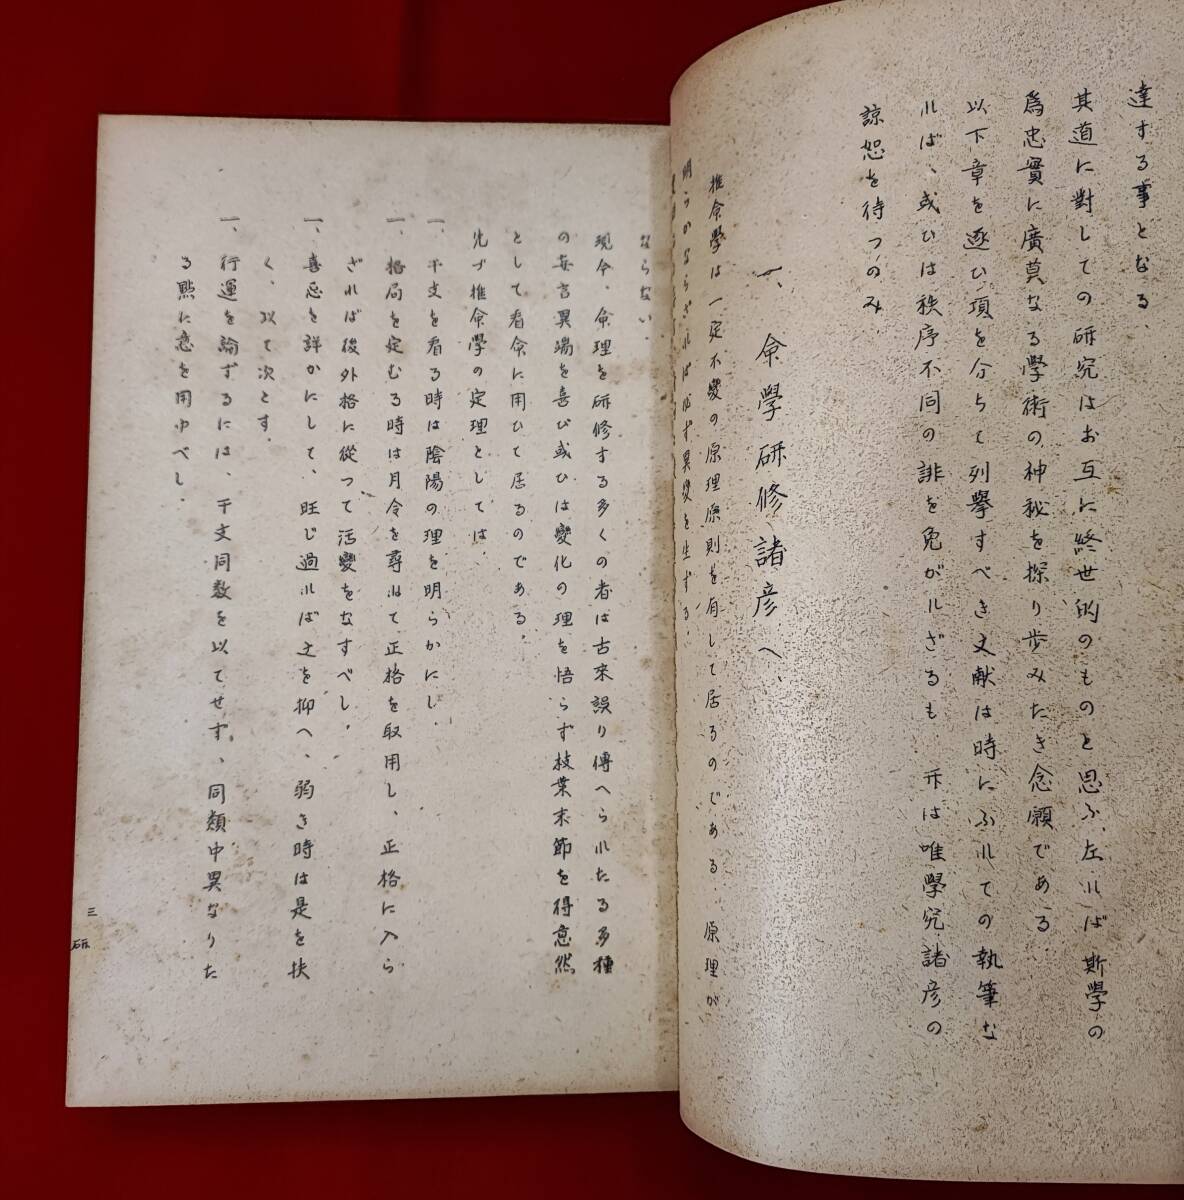 達する事となる、
其道に對しての研究はお互に終世的のものと思ふ、左れば斯學の
爲忠實に廣莫なる學術の神秘を探り歩みたき念願である、
以下章を逐ひ項を分ちて列擧すべき文献は時にふれての執筆な
れば、或ひは秩序不同の誹を免がれざるも 斥は唯學究諸彦の
諒恕を待つのみ、
一、命學研修諸彦へ、
推命學は一定不變の原理原則を有して居るのである、原理が
明らかならざれば必ず異變を生ずる、
ならない、
現今、命理を研修する多くの者は古來誤り傳へられたる多種
の妄言異端を喜び或ひは變化の理を悟らず枝葉末節を得意然
として看命に用ひて居るのである、
先づ推命學の定理としては、
一、干支を看る時は陰陽の理を明らかにし、
一、格局を定むる時は月令を尋ねて正格を取用し、正格に入ら
ざれば後外格に從って活變をなすべし、
一、喜忌を詳かにして、旺じ過れば之を抑へ、弱き時は是を扶
く、以て次とす、
一、行運を論ずるには、干支同数を以てせず、同類中異なりた
る點に意を用ゆべし、
三
研